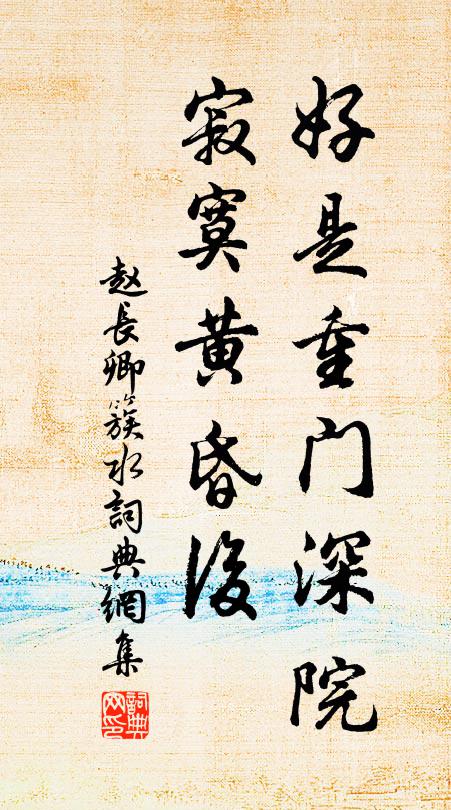 好是重门深院
寂寞黄昏後
赵長卿簇水詞典網集
詞典网印